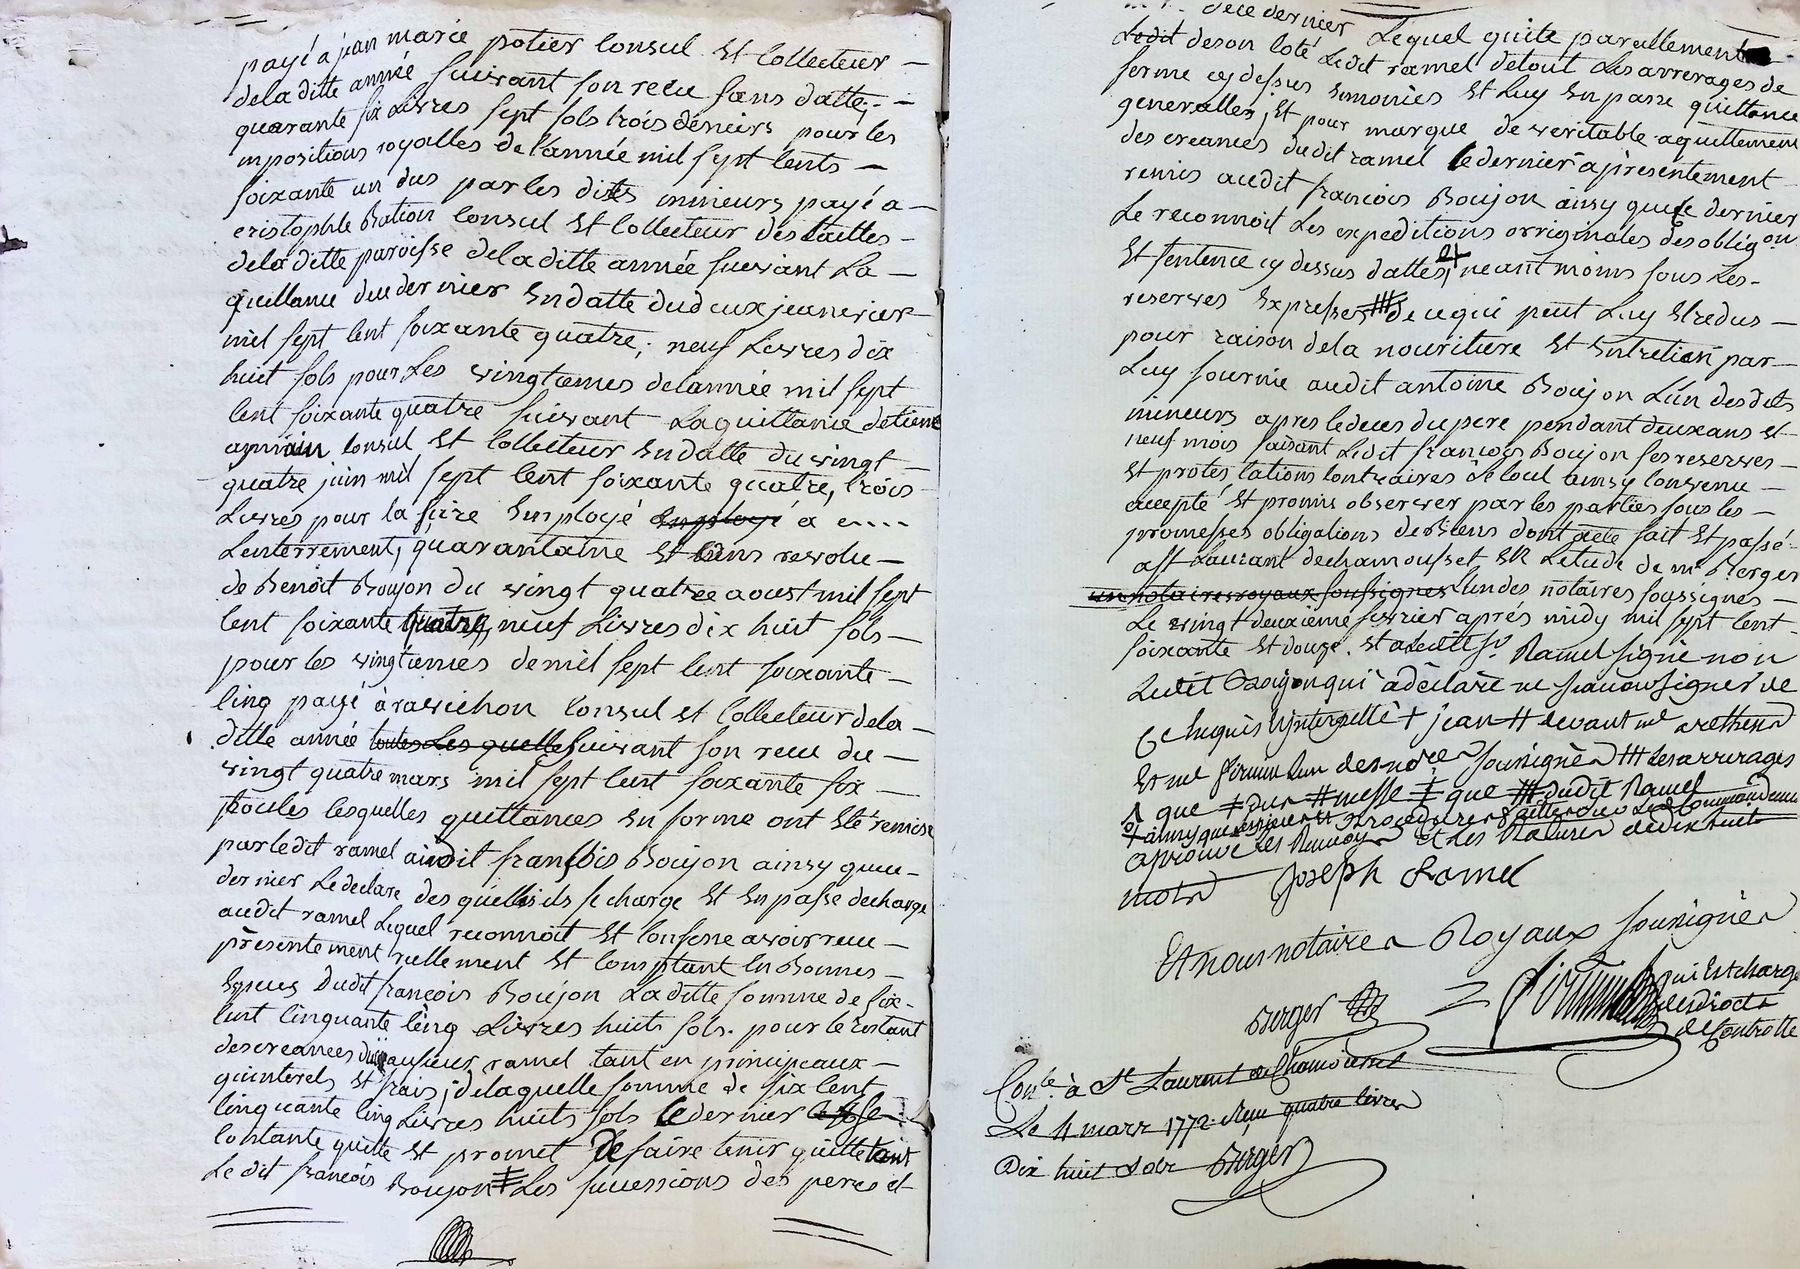 payé a jean marie potier Consul Et Collecteur —
dela ditte année suivant son recu sans datte; —
quarante six Livres sept sols trois deniers pour les
impositions royalles de l'année mil sept Cents —
soixante un dus par les dits mineurs payé a —
cristophle Bation Consul Et Collecteur des tailles —
dela ditte paroisse dela ditte année suivant La —
quittance du dernier En datte du deux jeanvier —
mil sept Cent soixante quatre; neuf Livres dix
huit sols pour Les vingtiemes delannée mil sept
Cent soixante quatre suivant La quittance detiene
Consul Et Collecteur En datte du vingt —
quatre juin mil sept Cent soixante quatre, trois
Livres pour la Cire Employé Employé a
Lenterrement, quarantaine Et Cens revolu —
de Benoit Boujon du vingt quatre aoust mil sept
Cent soixante quatre, neuf Livres dix huit sols —
pour les vingtiemes de mil sept Cent soixante —
Cinq payé à ravichon Consul et Collecteur dela —
ditte année toutes Les quelles suivant son recu du —
vingt quatre mars mil sept Cent soixante six —
toutes lesquelles quittances En forme ont Eté remise
par ledit ramel audit françois Boujon ainsy que ce —
dernier Le declare des quelles ils se charge Et En passe decharge
audit ramel Lequel reconnoit Et Confesse avoir recu —
présentement réellement Et Comptant En Bonnes —
Espéces dudit françois Boujon La ditte somme de six —
Cent Cinquante Cinq Livres huits sols. pour le restant
des creances du sieur ramel tant en principeaux —
quinterets Et frais; de laquelle somme de six Cent
Cinquante Cinq Livres huits sols Le dernier se
Contante quitte Et promet De faire tenir quitte
Le dit françois Boujon ‡ Les successions des peres et
dece dernier Lequel quitte parellement
Ledit de son Coté Ledit ramel de tout Les arrerages de
ferme cy dessus Enoncées Et Luy En passe quittance
generalles; Et pour marque de veritable aquittement
des creances dudit ramel Le dernier a présentement —
remis audit françois Boujon ainsy que Ce dernier
Le reconnoit Les expeditions orriginales des oblig.on
Et sentence cy dessus dattés, neantmoins sous Les —
reserves Expresses # de ce qui peut Luy Etre dus —
pour raison dela nouriture Et Entretien par —
Luy fournie audit antoine Boujon L'un desdits
mineurs apres le deces du pere pendant deux ans et
neuf mois faisant Ledit françois Boujon ses reserves —
Et protestations Contraires Le tout ainsy Convenu —
accepté Et promis observer par les parties sous les —
promesses obligations de Biens dont acte fait Et passé
a St Laurant de chamousset En Letude de me Berger
un notaires royaux soussignes Lun des notaires soussignes —
Le vingt deuxieme fevrier aprés midy mil sept Cent
soixante Et douze. Et a Ledit Sr. Ramel signé non
Ledit Boujon qui a déclaré ne savoir signer de
Ce Enquis Et Interpellé + jean # devant
Et me Lun des notres soussigné # Les arrerages
que ‡ du # messe ‡ que # dudit Ramel
+ ainsy que procedures faittes
aprouvé Les Renvoy Et Les Ratures de dix huit
mots Joseph Ramel
Et nous notaires Royaux soussignés
Berger
qui Est chargé
des droits
de Controlle
Conlé à St Laurent de Chamousset
Le 4 mars 1772. Reçu quatre livres
Dix huit sols Berger